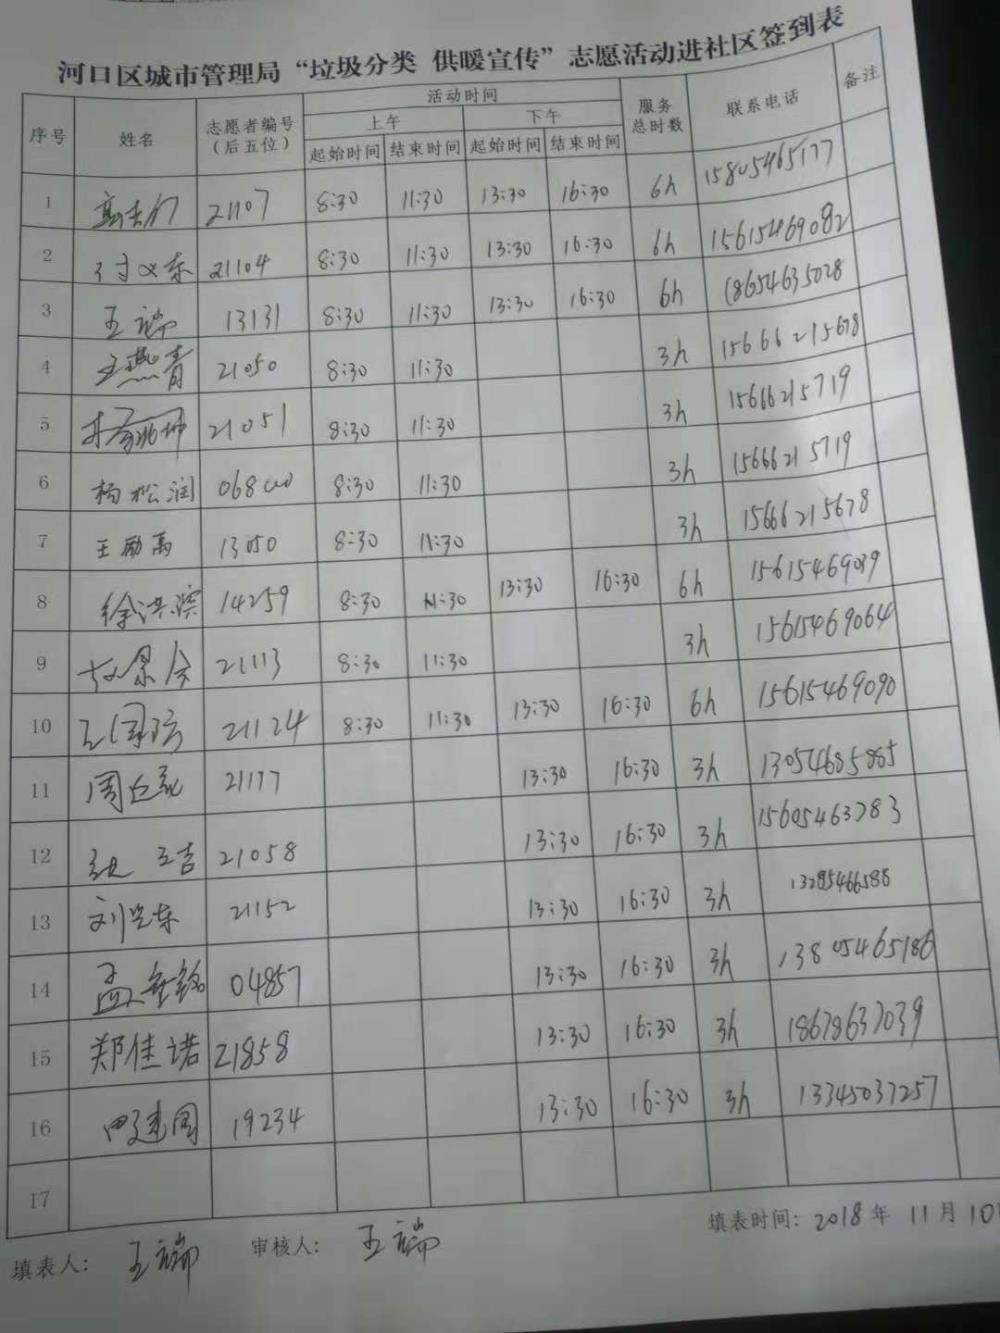 河口区城市管理局“垃圾分类 供暖宣传”志愿活动进社区签到表
序号 姓名 志愿者编号（后五位） 活动时间 服务总时数 联系电话 备注
上午 下午
起始时间 结束时间 起始时间 结束时间
1 21107 8:30 11:30 13:30 16:30 6h 15805465177
2 21104 8:30 11:30 13:30 16:30 6h 15615469082
3 王瑞 13131 8:30 11:30 13:30 16:30 6h 18654635028
4 王燕青 21050 8:30 11:30 3h 15666215678
5 21051 8:30 11:30 3h 15666215719
6 杨松润 8:30 11:30 3h 15666215719
7 王励高 13050 8:30 11:30 3h 15666215678
8 徐洪滨 14259 8:30 11:30 13:30 16:30 6h 15615469039
9 21113 8:30 11:30 3h 15615469064
10 21124 8:30 11:30 13:30 16:30 6h 15615469090
11 21177 13:30 16:30 3h 13054685865
12 21058 13:30 16:30 3h 15605463783
13 21152 13:30 16:30 3h 13285466588
14 04857 13:30 16:30 3h 13805465186
15 郑佳诺 21858 13:30 16:30 3h 18678637039
16 田建国 19234 13:30 16:30 3h 13345037257
17
填表人： 王瑞 审核人： 王瑞 填表时间：2018年11月10